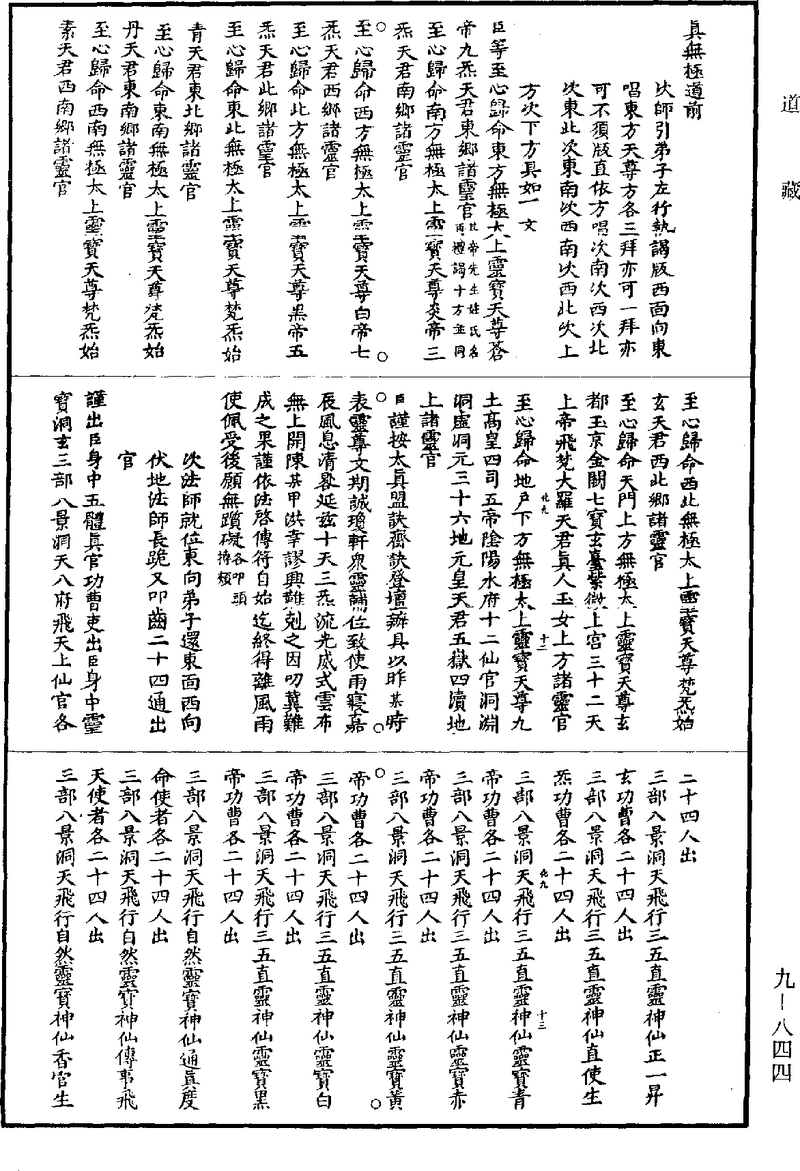 道藏
眞無極道前
次師引弟子左行執謁版西面向東
唱東方天尊方各三拜亦可一拜亦
可不須版直依方唱次南次西次北
次東北次東南次西南次西北次上
方次下方具如一文
臣等至心歸命東方無極太上靈寶天尊蒼
帝九炁天君東鄉諸靈官此帝先生姓氏名再禮謁十方並同
至心歸命南方無極太上靈寶天尊炎帝三
炁天南鄉諸靈官
至心歸命西方無極太上靈寶天尊白帝七
炁天君西鄉諸靈官
至心歸命北方無極太上靈寶天尊黑帝五
炁天君北鄉諸靈官
至心歸命東北無極太上靈寶天尊梵炁始
青天君東北鄉諸靈官
至心歸命東南無極太上靈寶天尊梵炁始
丹天君東南鄉諸靈官
至心歸命西南無極太上靈寶天尊梵炁始
素天君西南鄉諸靈官
至心歸命西北無極太上靈寶天尊梵炁始
玄天君西北鄉諸靈官
至心歸命天門上方無極太上靈寶天尊玄
都玉京金闕七寶玄臺紫微上宮三十二天
上帝飛梵大羅天君眞人玉女上方諸靈官
化九 十二
至心歸命地戶下方無極太上靈寶天尊九
土高皇四司五帝陰陽水府十二仙官洞淵
洞虛洞元三十六地元皇天君五嶽四瀆地
上諸靈官
臣謹按太眞盟訣齋訣登壇辦具以昨某時
表靈尊文期誠瓊軒衆靈黼位致使雨寢嘉
辰風息清晷延茲十天三炁流光威式雲布
無上開陳某甲洪幸謬興難剋之因叨冀難
成之果謹依法啓傳符自始迄終得離風雨
使佩受後願無躓礙各叩頭摶頰
次法師就位東向弟子還東面西向
伏地法師長跪又叩齒二十四通出
官
謹出臣身中五體眞官功曹吏出臣身中靈
寶洞玄三部八景洞天八府飛天上仙官各
二十四人出
三部八景洞天飛行三五直靈神仙正一昇
玄功曹各二十四人出
三部八景洞天飛行三五直靈神仙直使生
炁功曹各二十四人出
化九 十三
三部八景洞天飛行三五直靈神仙靈寶青
帝功曹各二十四人出
三部八景洞天飛行三五直靈神仙靈寶赤
帝功曹各二十四人出
三部八景洞天飛行三五直靈神仙靈寶黃
帝功曹各二十四人出
三部八景洞天飛行三五直靈神仙靈寶白
帝功曹各二十四人出
三部八景洞天飛行三五直靈神仙靈寶黑
帝功曹各二十四人出
三部八景洞天飛行自然靈寶神仙通眞度
命使者各二十四人出
三部八景洞天飛行自然靈寶神仙傳事飛
天使者各二十四人出
三部八景洞天飛行自然靈寶神仙香官生
九—八四四